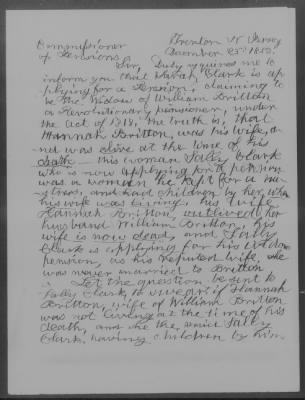 Trenton N. Jersey
Commissioner December 23d 1852.
of Pensions
Sir, Duty requires me to
inform you that Sarah Clark is ap
plying for a Pension, claiming to
be the Widow of William Britton
a Revolutionary pensioner, under
the act of 1818, the truth is, that
Hannah Britton, was his wife, a
nd was alive at the time of his
death - this woman Sally Clark
who is now applying for the pension
was a woman he kept for a mis
stress, and had children by her, when
his wife was living, his wife
Hannah Britton, outlived her
husband William Britton, his
wife is now dead, and Sally
Clark is applying for his widow
pension, as his reputed wife, she
was never married to Britton
Let the question be sent to
Sally Clark, to swear if Hannah
Britton, wife of William Britton
was not living at the time of his
death, and she the said Sally
Clark, having children by him